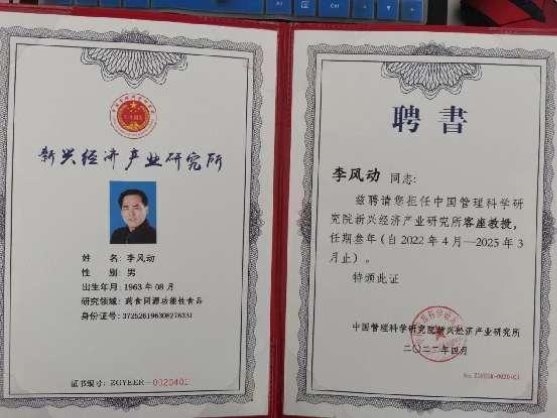 新兴经济产业研究所
姓 名: 李风动
性 别: 男
出生年月: 1963 年 08 月
研究领域: 药食同源功能性食品
身份证号: 372526196308278351
证书编号: ZGYEER—0020402
聘书
李风动 同志:
兹聘请您担任中国管理科学研
究院新兴经济产业研究所客座教授,
任期叁年(自 2022 年 4 月—2025 年 3
月止)。
特颁此证
中国管理科学研究院新兴经济产业研究所
二〇二二年四月